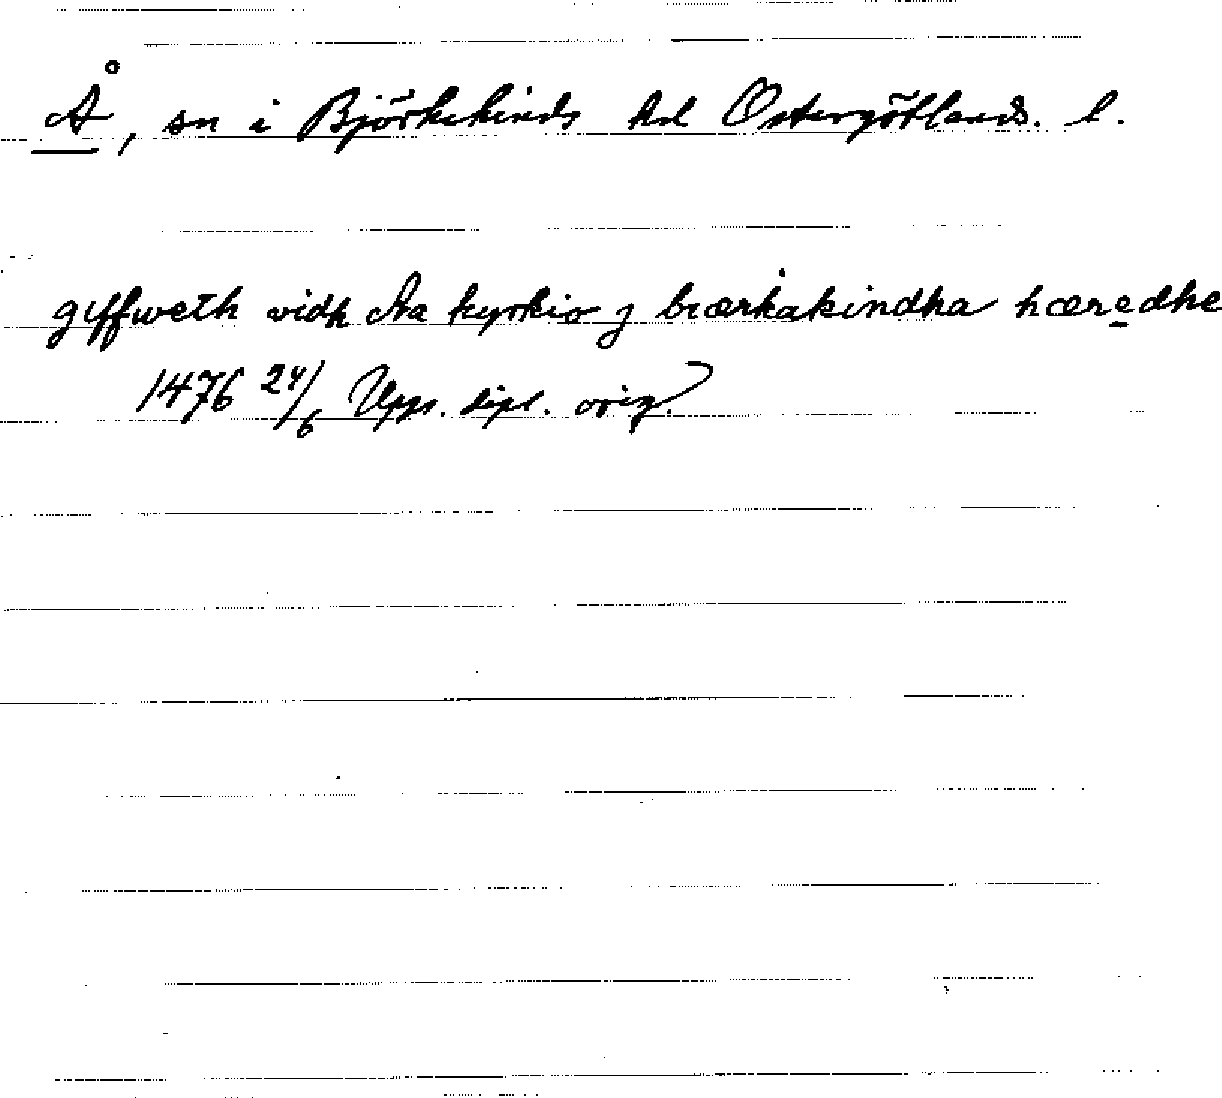 Å, sn i Björkekinds hd Östergötlands. l.
giffweth vidh Aa kyrkio j biærkakindha hæredhe
1476 24/6 Upps. dipl. orig.